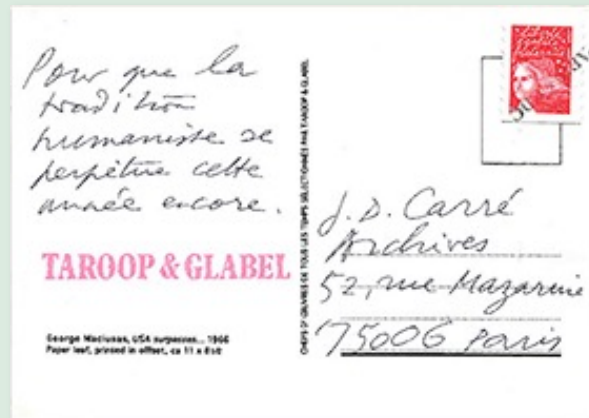 Pour que la
tradition
humaniste se
perpétue cette
année encore.
TAROOP & GLABEL
George Maciunas, USA surpasses... 1966
Paper leaf, printed in offset, ca 11 x
CHEFS D'ŒUVRES DE TOUS LES TEMPS SÉLECTIONNÉS PAR TAROOP & GLABEL
J.D. Carré
Archives
52, rue Mazarine
75006 Paris